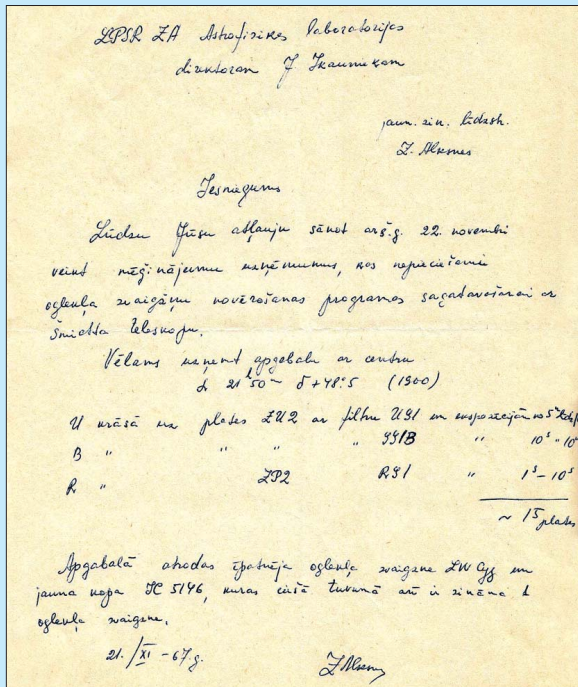 LPSR ZA Astrofizikas laboratorijas
direktoram J. Ikauniekam
jaun. zin. līdzstr.
Z. Alksnes
Iesniegums
Lūdzu Jūsu atļauju sākot ar š.g. 22. novembri
veikt mēģinājumu uzņēmumus, kas nepieciešami
oglekļa zvaigžņu novērošanas programas sagatavošanai ar
Šmidta teleskopu.
Vēlams uzņemt apgabalu ar centru
α 21ʰ50ᵐ δ+48°.5 (1900)
U krāsā uz plates ZU2 ar filtru UG1 un ekspozīcijām no 5ˢ
B " " " " GG13 " 10ˢ - 10
R " ZP2 RG1 " 1ˢ - 10ˢ
~ 15 plates
Apgabalā atrodas īpatnēja oglekļa zvaigzne LW Cyg un
jauna kopa IC 5146, kuras ciešā tuvumā arī ir zināma 1
oglekļa zvaigzne.
21./XI - 67.g.
ZAlksne